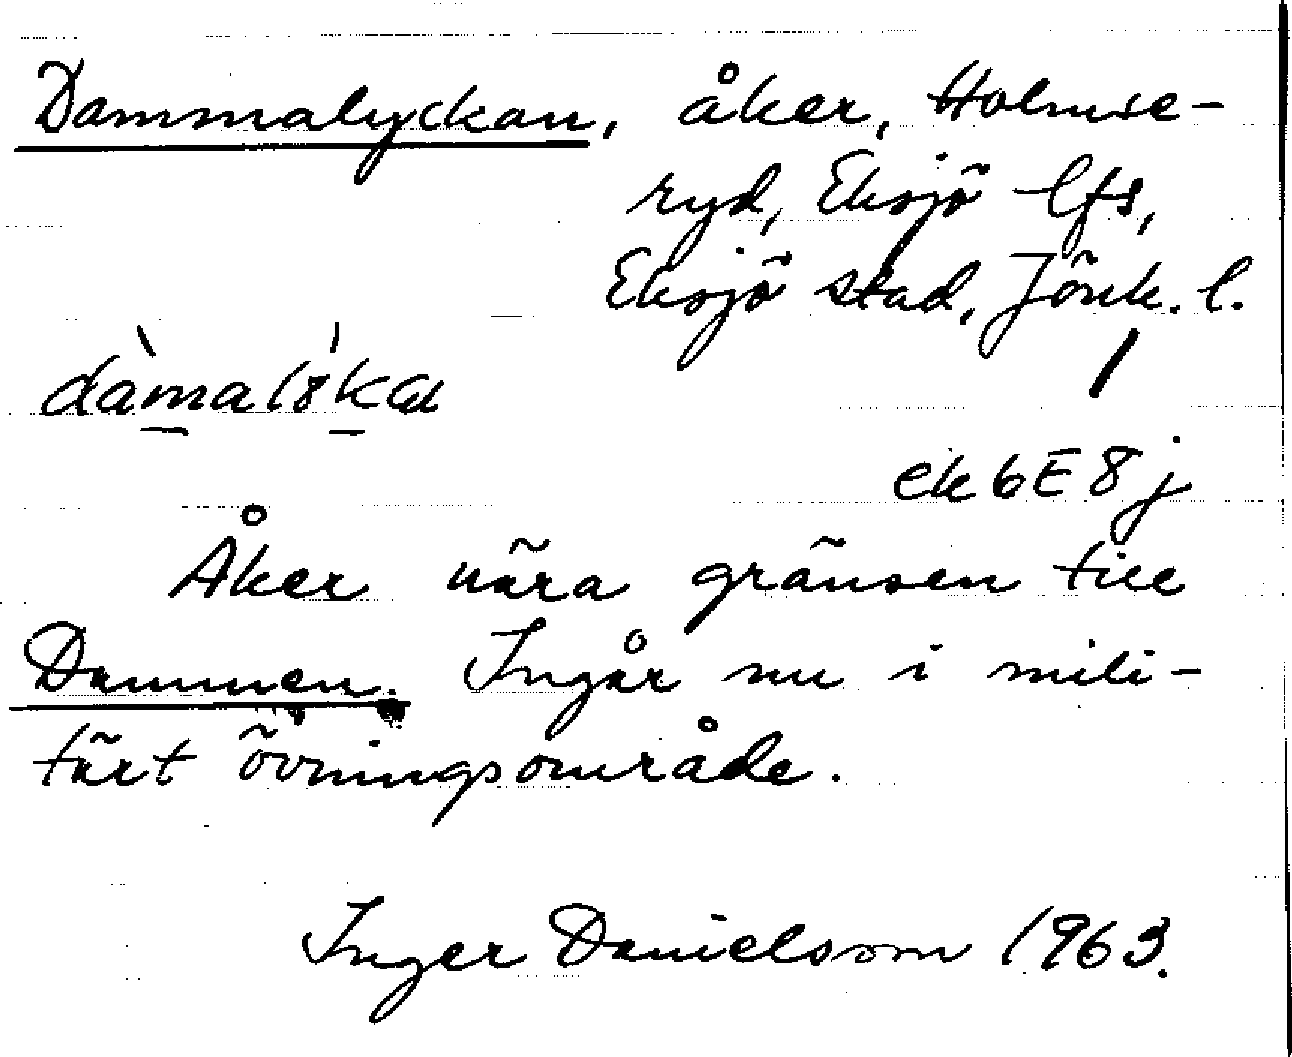 Dammalyckan, åker, Holmse-
ryd, Eksjö lfs,
Eksjö stad, Jönk. l.
ek 6E8j
Åker nära gränsen till
Dammen. Ingår nu i mili-
tärt övningsområde.
Inger Danielsson 1963.